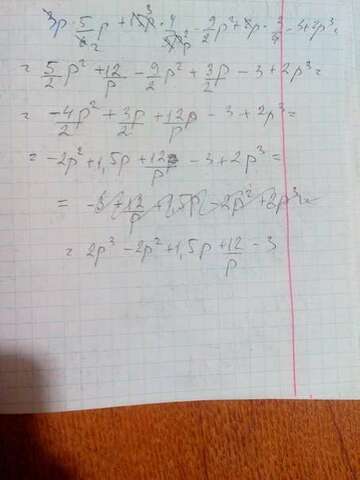 3p · 5/6₂ p + 15p³ · 4/5p² - 9/2 p² + p · 3/2 - 3 + 2p³ =
= 5/2 p² + 12/p - 9/2 p² + 3/2 p - 3 + 2p³ =
= -4p²/2 + 3p/2 + 12/p - 3 + 2p³ =
= -2p² + 1,5p + 12/p - 3 + 2p³ =
= -3 + 12/p + 1,5p - 2p² + 2p³ =
= 2p³ - 2p² + 1,5p + 12/p - 3